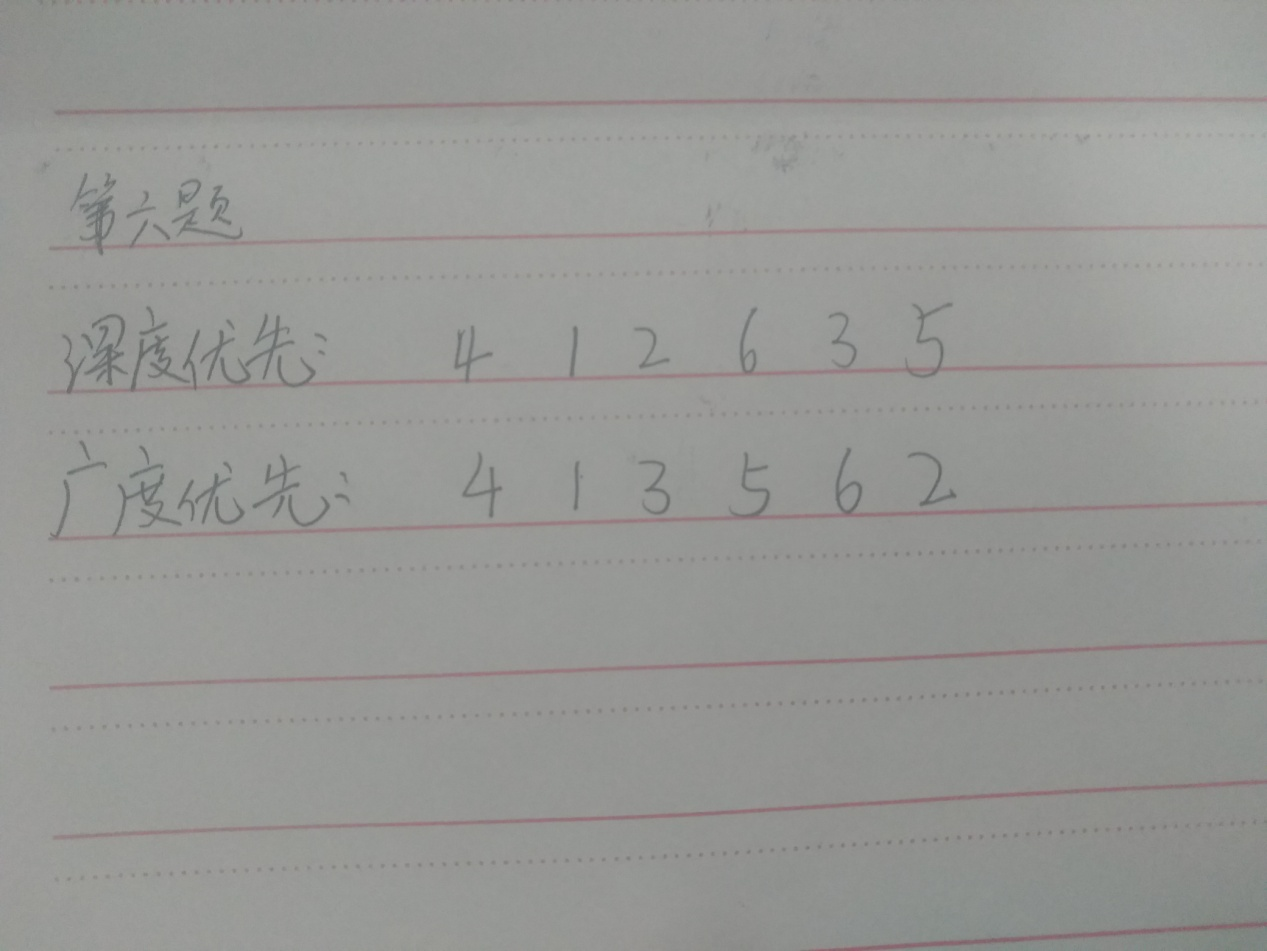 第六题
深度优先: 4 1 2 6 3 5
广度优先: 4 1 3 5 6 2